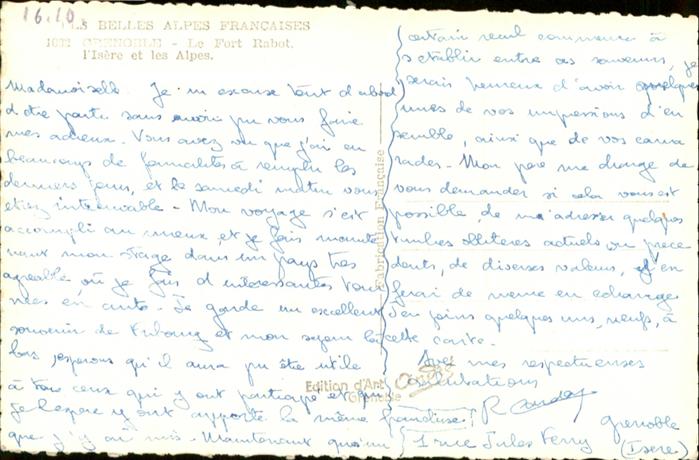 16.10
LES BELLES ALPES FRANÇAISES
1022 GRENOBLE - Le Fort Rabot.
l'Isère et les Alpes.
Mademoiselle. Je m'excuse tout d'abord
d'être parti sans avoir pu vous faire
mes adieux. Vous avez vu que j'ai eu
beaucoup de formalités à remplir les
derniers jours, et le samedi matin vous
étiez introuvable - Mon voyage s'est
accompli au mieux, et je fais mainte
nant mon stage dans un pays très
agréable, où je fais d'intéressantes tour
nées en auto. Je garde un excellent
souvenir de Fribourg et mon séjour là
bas, espérons qu'il aura pu être utile
à tous ceux qui y ont participé et qui
je l'espère y ont apporté la même
que j'y ai mis. Maintenant qu'un
certain recul commence à
s'établir entre ces souvenirs, je
serais heureux d'avoir quelques
unes de vos impressions d'en
semble, ainsi que de vos cama
rades. Mon père me charge de
vous demander si cela vous est
possible de m'adresser quelques
timbres oblitérés actuels, ou précé
dents, de diverses valeurs, j'en
ferai de même en échange
J'en joins quelques uns, neufs, à
cette carte.
Avec mes respectueuses
salutations
grenoble
1 rue Jules Ferry
(Isère)
Fabrication Française
Edition d'Art
Grenoble